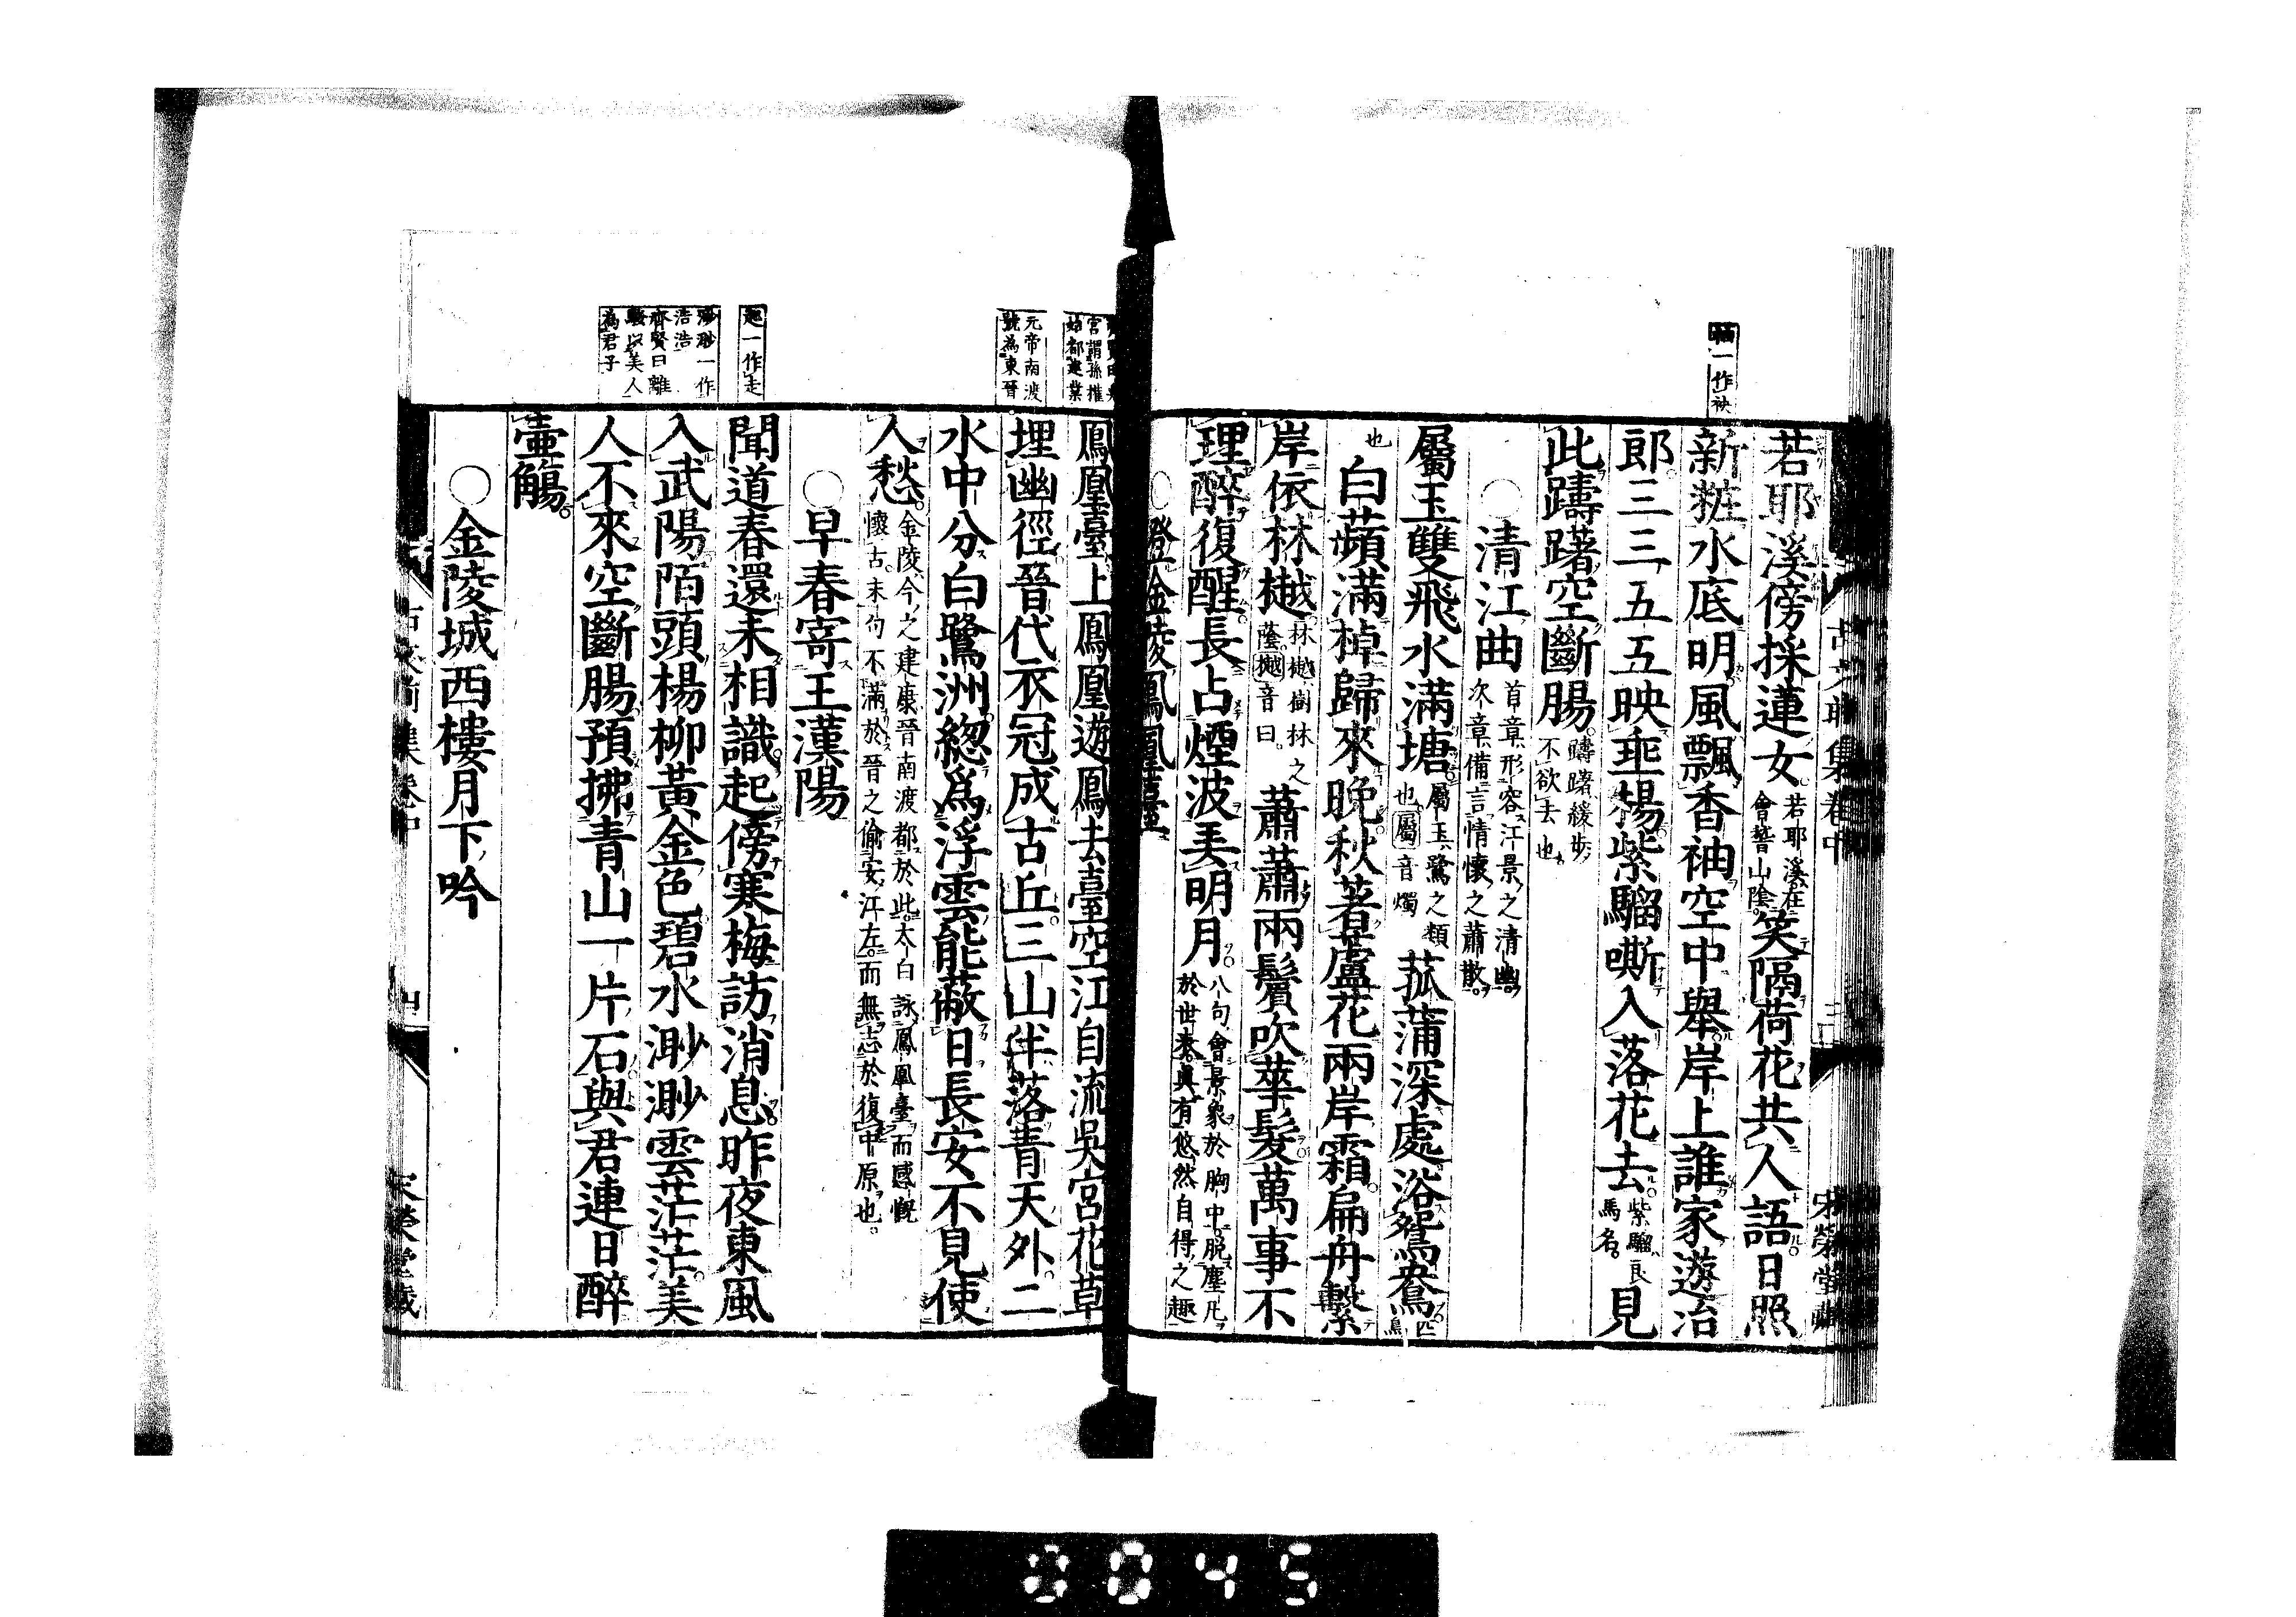 若耶溪傍採蓮女若耶溪在會誓山陰笑隔荷花共人語日照
新粧水底明風飄香袖空中舉岸上誰家遊冶
郎三三五五映垂楊紫騮嘶入落花去紫騮良馬名見
此躊躇空斷腸躊躇緩步不欲去也
○清江曲首章形容江景之清幽次章備言情懷之蕭散
屬玉雙飛水滿塘屬玉鷺之類也屬音燭菰蒲深處浴鴛鴦匹鳥
也白蘋滿棹歸來晚秋著蘆花兩岸霜扁舟繫
岸依林樾林樾樹林之蔭樾音曰蕭蕭兩鬢吹華髮萬事不
理醉復醒長占煙波弄明月八句會景象於胸中脫塵凡於世表真有悠然自得之趣
○登金陵鳳凰臺
鳳凰臺上鳳凰遊鳳去臺空江自流吳宮花草
埋幽徑晉代衣冠成古丘三山半落青天外二
水中分白鷺洲緫爲浮雲能蔽日長安不見使
人愁金陵今之建康晉南渡都於此太白詠鳳凰臺而感慨懷古末句不滿於晉之偷安江左而無志於復中原也
○早春寄王漢陽
聞道春還未相識起傍寒梅訪消息昨夜東風
入武陽陌頭楊柳黃金色碧水渺渺雲茫茫美
人不來空斷腸預拂青山一片石與君連日醉
壷觴
○金陵城西樓月下吟
袖一作袂
宮謂孫權
始都建業
元帝南渡
號為東晉
起一作走
渺渺一作
浩浩
齊賢曰離
騷以美人
為君子
卷中
宋榮堂藏
0045